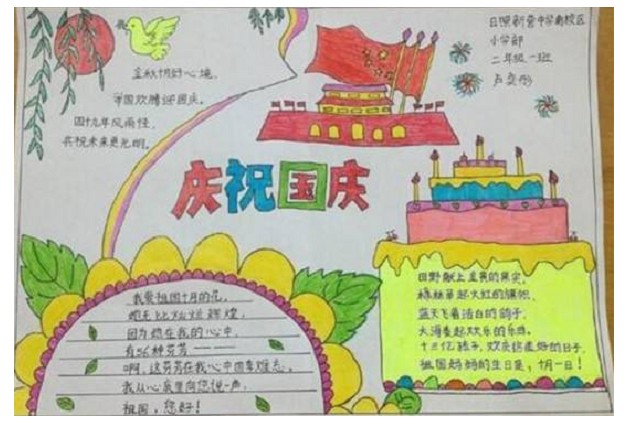 日照新营中学南校区
小学部
二年级一班
金秋十月好心境，
举国欢腾迎国庆。
四十九年风雨怪，
共祝未来更光明。
庆祝国庆
我爱祖国十月的花，
都是比灿烂辉煌，
因为你在我的心中，
有56种芬芳———
啊，这芬芳在我心中回味难忘，
我从心底里向您说一声，
祖国，您好！
田野献上金黄的果实，
稻菽举起火红的旗帜，
蓝天飞着洁白的鸽子，
大海奏起欢乐的乐曲。
十三亿孩子，欢庆
祖国妈妈的生日是，十月一日！